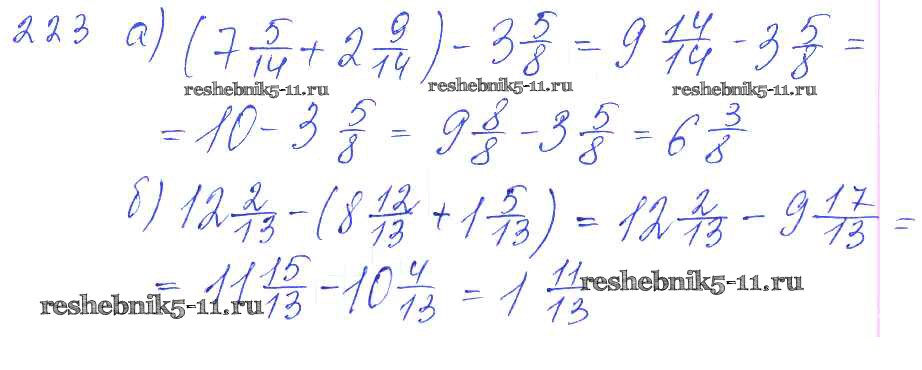 223 а) (7 5/14 + 2 9/14) - 3 5/8 = 9 14/14 - 3 5/8 =
reshebnik5-11.ru reshebnik5-11.ru reshebnik5-11.ru
= 10 - 3 5/8 = 9 8/8 - 3 5/8 = 6 3/8
б) 12 2/13 - (8 12/13 + 1 5/13) = 12 2/13 - 9 17/13 =
= 11 15/13 - 10 4/13 = 1 11/13
reshebnik5-11.ru reshebnik5-11.ru